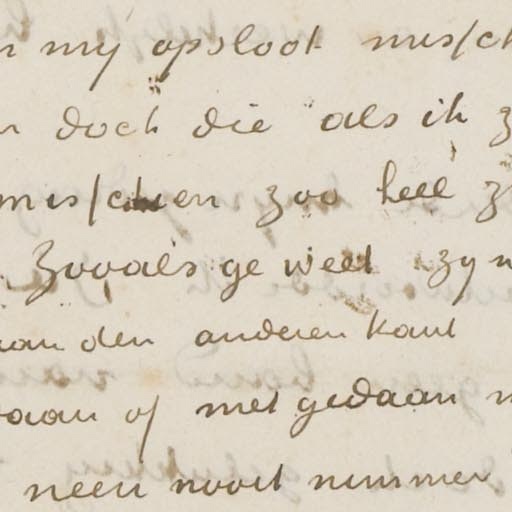 n mij opsloot miss
n doch die als ik z
misschien zoo heel z
Zooals ge weet zijn
aan den anderen kant
daan of met gedaan
neen nooit nimmer